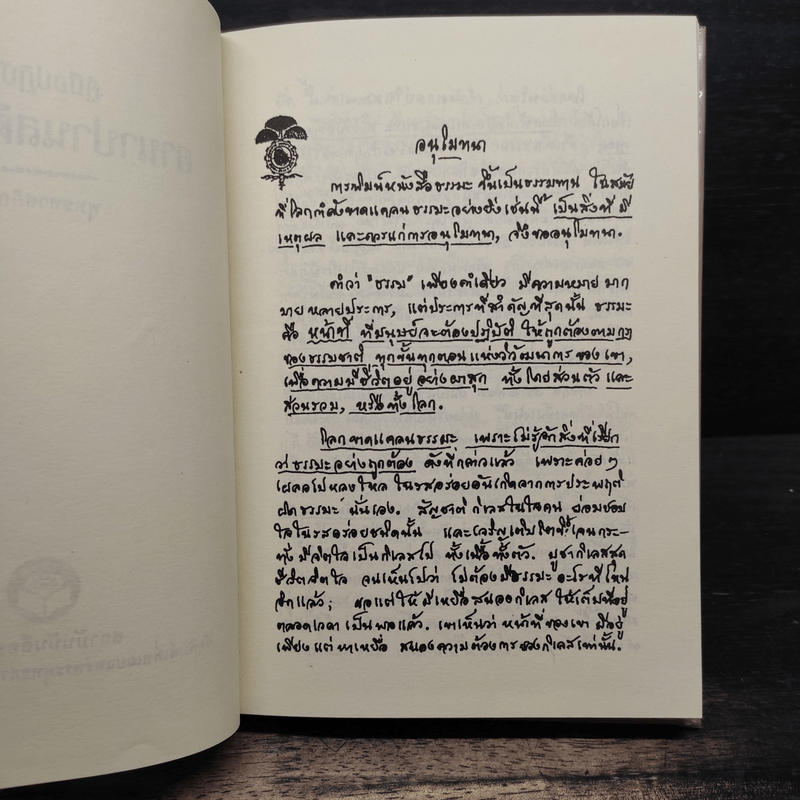 คู่มือปฏิบั
อานาปานสติ
พุทธทาสภิก
อนุโมทนา
การพิมพ์หนังสือธรรมะ ขึ้นเป็นธรรมทาน ในสมัย
ที่โลกกำลังขาดแคลนธรรมะอย่างยิ่งเช่นนี้ เป็นสิ่งที่ มี
เหตุผล และควรแก่การอนุโมทนา, จึงขออนุโมทนา.
คำว่า "ธรรม" เพียงคำเดียว มีความหมาย มาก
มายหลายประการ, แต่ประการที่สำคัญที่สุดนั้น ธรรมะ
คือ หน้าที่ ที่มนุษย์จะต้องปฏิบัติ ให้ถูกต้องตามกฎ
ของธรรมชาติ ทุกขั้นทุกตอน แห่งวิวัฒนาการ ของเขา,
เพื่อความมีชีวิตอยู่ อย่างผาสุก ทั้งโดยส่วนตัว และ
ส่วนรวม, หรือทั้งโลก.
โลกขาดแคลนธรรมะ เพราะไม่รู้จักสิ่งที่เรียก
ว่าธรรมะอย่างถูกต้อง ดังที่กล่าวแล้ว เพราะค่อยๆ
เผลอไปหลงใหล ในรสอร่อยอันเกิดจากการประพฤติ
ผิดธรรมะ นั่นเอง. สัญชาติ กิเลสในใจคน ย่อมชอบ
ใจในรสอร่อยชนิดนั้น และเจริญเติบโตขึ้จนกระ-
ทั่งมีจิตใจเป็นกิเลสไป ทั้งเนื้อทั้งตัว. บูชากิเลสสุด
ชีวิตจิตใจ จนเห็นไปว่า ไม่ต้องมีธรรมะ อะไรที่ไหน
อีกแล้ว; ขอแต่ให้มีเหยื่อสนองกิเลส ให้เต็มที่อยู่
ตลอดเวลา เป็นพอแล้ว. เขาเห็นว่า หน้าที่ของเขา มีอยู่
เพียงแต่ หาเหยื่อ สนองความต้องการของกิเลสเท่านั้น.